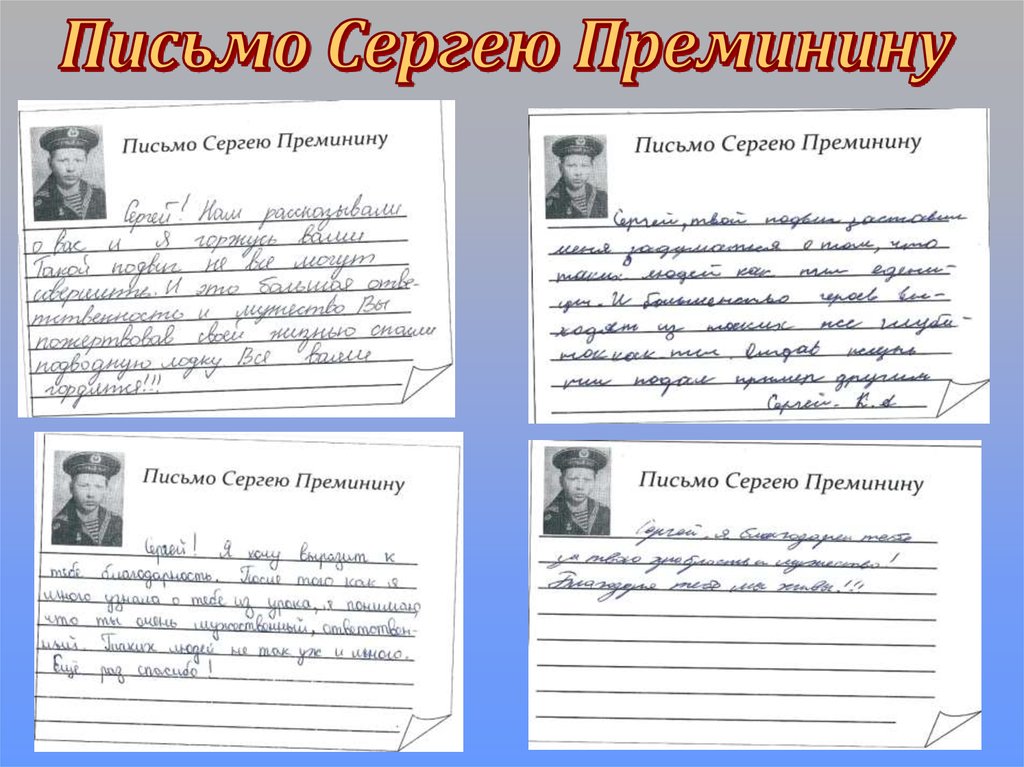 Письмо Сергею Преминину
Письмо Сергею Преминину
Сергей! Нам рассказывали
о вас и я горжусь вами
Такой подвиг не все могут
совершить. И это большая отве-
тственность и мужество Вы
пожертвовав своей жизнью спасли
подводную лодку. Все вами
гордятся!!!
Письмо Сергею Преминину
Сергей, твой подвиг заставил
меня задуматся о том, что
таких людей как ты едени-
цы. И большенство героев вы-
ходят из таких же глуби-
нок как ты. Отдав жизнь
ты подал пример другим
Сергей. К.А
Письмо Сергею Преминину
Сергей! Я хочу выразит к
тебе благодарность. После того как я
много узнала о тебе из урока, я понимаю,
что ты очень мужественный, ответствен-
ный. Таких людей не так уж и много.
Ещё раз спасибо!
Письмо Сергею Преминину
Сергей, я благодарен тебе
за твою храбрость и мужество!
Благодаря тебе мы живы!!!